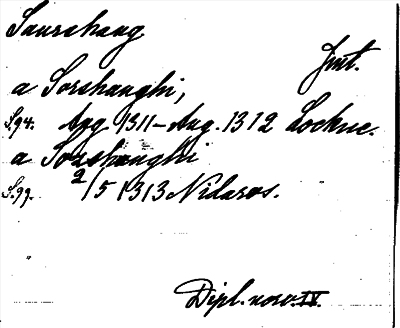 Saurshaug
Jmt.
a Sorshaughi,
S.94. Aug. 1311–Aug. 1312 Lockne.
a Sorshaughi
S.99. 2/5 1313 Nidaros.
Dipl. norv. IV.